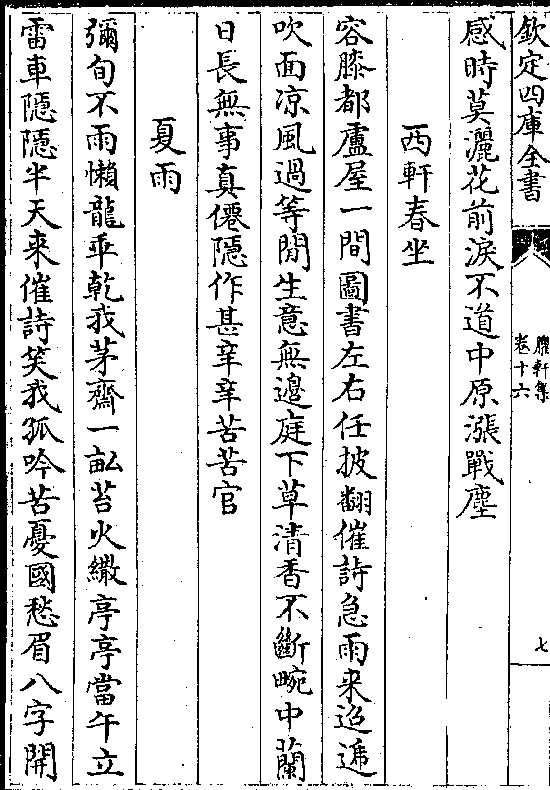 欽定四庫全書
臞軒集
卷十六
七
感時莫灑花前淚不道中原漲戰塵
西軒春坐
容膝都盧屋一間圖書左右任披翻催詩急雨来迢遞
吹面涼風過等閒生意無邊庭下草清香不斷畹中蘭
日長無事真僊隱作甚辛辛苦苦官
夏雨
彌旬不雨懶龍乖乾我茅齋一畝苔火繖亭亭當午立
雷車隱隱半天来催詩笑我孤吟苦憂國愁眉八字開